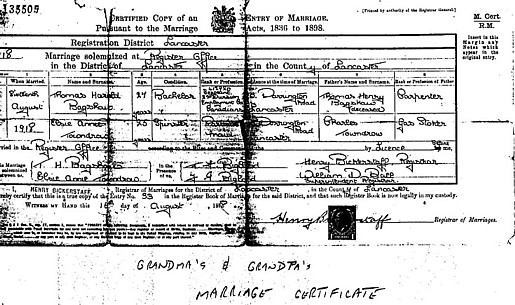 133505
CERTIFIED COPY of an ENTRY OF MARRIAGE.
Pursuant to the Marriage Acts, 1836 to 1898.
[Printed by authority of the Registrar General.]
M. Cert.
R.M.
Insert in this Margin any Notes which appear in the original entry.
Registration District Lancaster
1918 Marriage solemnized at Register Office
in the District of Lancaster in the County of Lancaster
When Married. Name and Surname. Age. Condition. Rank or Profession. Residence at the time of Marriage. Father's Name and Surname. Rank or Profession of Father
Sixteenth August 1918 Thomas Harold Bagshaw 27 years Bachelor Canadian Dorrington Road Lancaster Thomas Henry Bagshaw (deceased) Carpenter
Elsie Annie Toundrow 25 years Spinster Dorrington Road Lancaster Charles Toundrow Gas Stoker
Married in the Register Office according to the by Licence by me,
This Marriage was solemnized between us T. H. Bagshaw Elsie Annie Toundrow in the Presence of us Henry Bickerstaff Registrar
William D. Ball Superintendent Registrar
I, HENRY BICKERSTAFF, Registrar of Marriages for the District of Lancaster, in the County of Lancaster
hereby certify that this is a true copy of the Entry No. 33 in the Register Book of Marriages for the said District, and that such Register Book is now legally in my custody.
WITNESS MY HAND this 16 day of August, 1918
Henry Bickerstaff Registrar of Marriages.
GRANDMA'S & GRANDPA'S
MARRIAGE CERTIFICATE